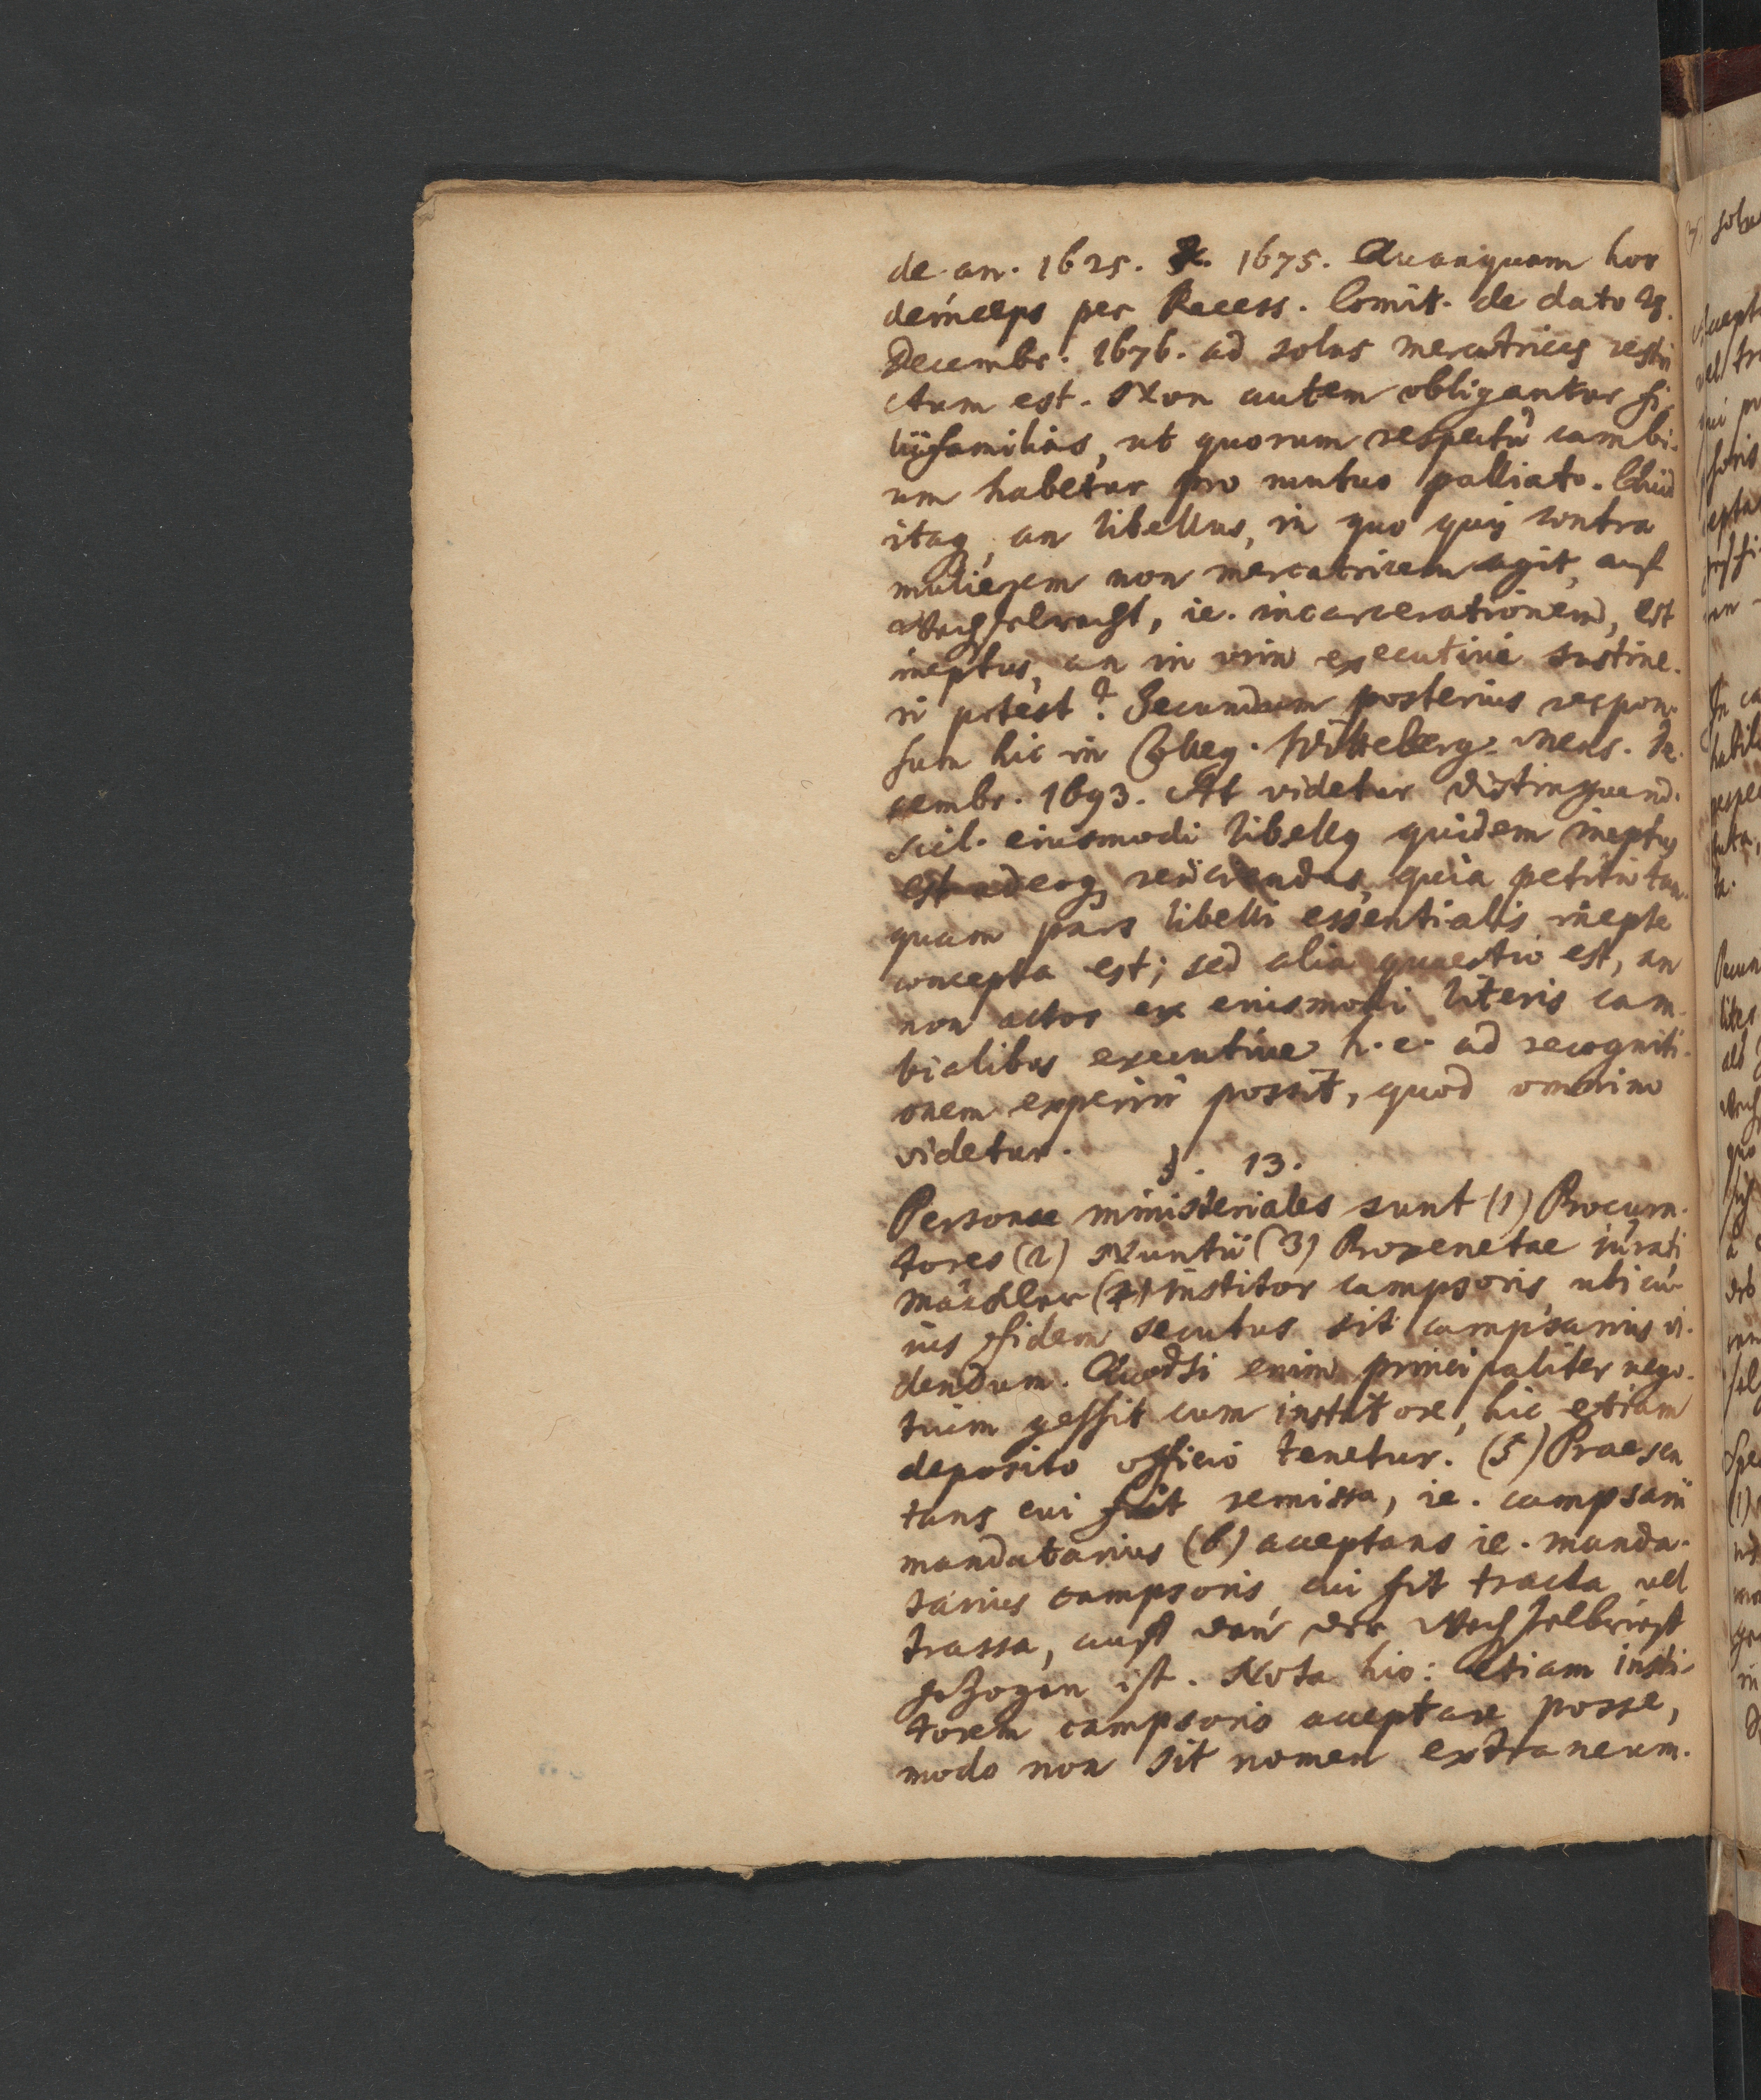 de an. 1625. & 1675. Quanquam hoc
deinceps per Recess. Comit. de dato 28.
Decembr. 1676. ad solas mercatrices restri
ctum est. Non autem obligantur fi-
liifamilias, ut quorum respectu cambi-
um habetur pro mutuo palliato. Quid
itaq, an libellus, in quo quis contra
mulierem non mercatricem agit, auf
Wechselrecht, ie. incarcerationem, est
ineptus, an in vim executivi sustine-
ri potest? Secundum posterius respon-
sum hic in Colleg. Witteberg. Mens. De-
cembr. 1693. At videtur distinguend.
scil. eiusmodi libellg quidem ineptus
est adeoq reiiciendus, quia petitio tan-
quam pars libelli essentialis inepte
concepta est; sed alia quaestio est, an
non actor ex eiusmodi literis cam-
bialibus executive h. e. ad recogniti-
onem experiri possit, quod omnino
videtur.
§. 13.
Personae ministeriales sunt (1) Procura-
tores (2) Nuntii (3) Proxenetae iurati
Mäckler (4) institor campsoris, ubi cu-
ius fidem secutus sit campsarius vi-
dendum. Quodsi enim principaliter nego-
tium gessit cum institore, hic etiam
deposito officio tenetur. (5) Praesen
tans cui fuit remissa, ie. campsarii
mandatarius (6) acceptans ie. manda-
tarius campsoris, cui fit tracta vel
trassa, auff den der Wechselbrieff
gezogen ist. Nota hic: etiam insti-
torem campsoris acceptare posse,
modo non sit nomen extraneum.